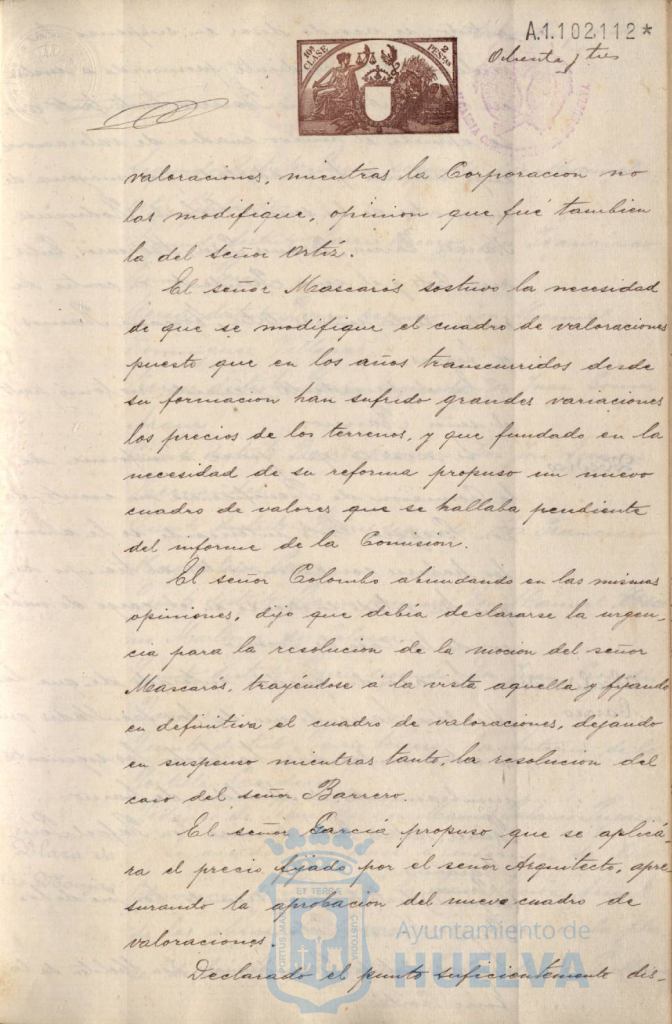 A.1.102,112*
10ª CLASE
2 PESTAS
Ochenta y tres
valoraciones, mientras la Corporacion no
las modifique, opinion que fué tambien
la del señor Ortíz.
El señor Mascarós sostuvo la necesidad
de que se modifique el cuadro de valoraciones
puesto que en los años transcurridos desde
su formacion han sufrido grandes variaciones
los precios de los terrenos, y que fundado en la
necesidad de su reforma propuso un nuevo
cuadro de valores que se hallaba pendiente
del informe de la Comision.
El señor Colombo abundando en las mismas
opiniones, dijo que debía declararse la urgen-
cia para la resolucion de la mocion del señor
Mascarós, trayéndose á la vista aquella y fijando
en definitiva el cuadro de valoraciones, dejando
en suspenso mientras tanto, la resolucion del
caso del señor Barrero.
El señor García propuso que se aplicá-
ra el precio fijado por el señor Arquitecto, apre
surando la aprobacion del nuevo cuadro de
valoraciones.
Declarado el punto suficientemente dis-
PORTUS MARIS ET TERRÆ CUSTODIA
Ayuntamiento de
HUELVA